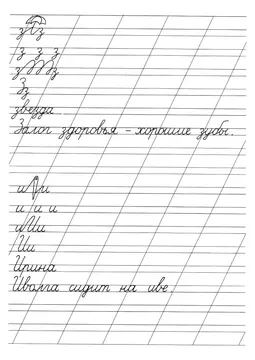 з з
з з з
з з
Зз
звезда
Залог здоровья - хорошие зубы.
и и
и и и
и Ии
Ии
Ирина
Иволга сидит на иве.